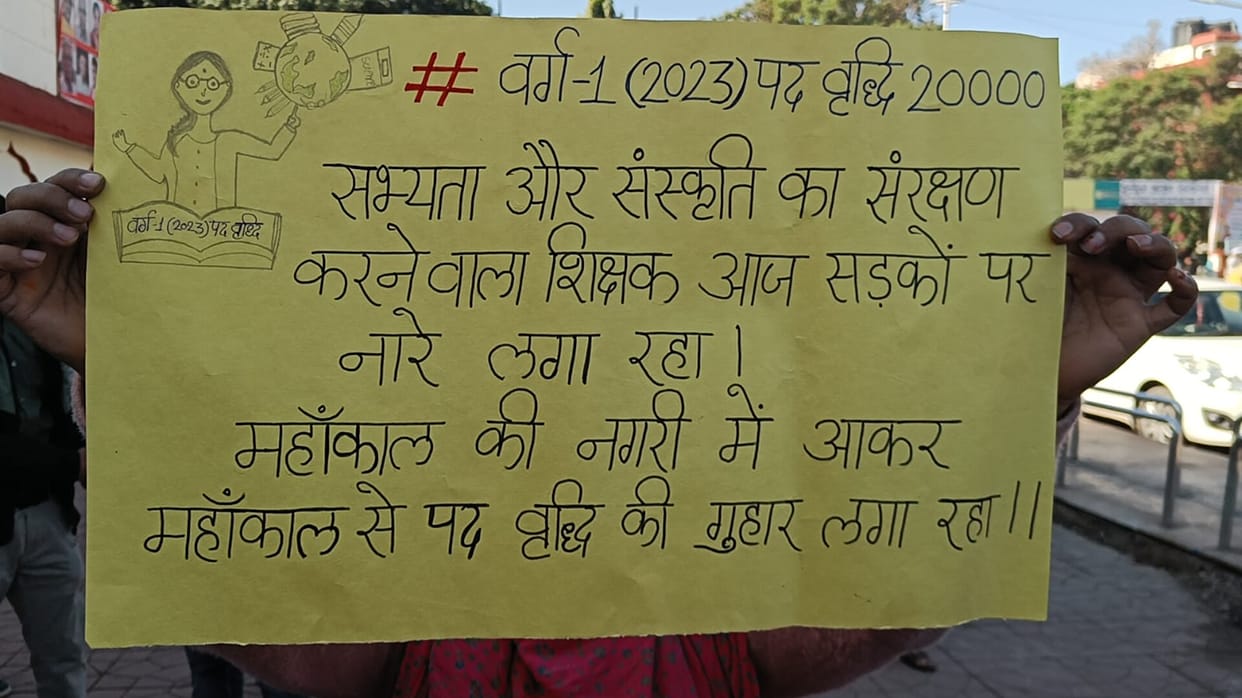 # वर्ग-1 (2023) पद वृद्धि 20000
सभ्यता और संस्कृति का संरक्षण
करने वाला शिक्षक आज सड़कों पर
नारे लगा रहा।
महाँकाल की नगरी में आकर
महाँकाल से पद वृद्धि की गुहार लगा रहा।।
वर्ग-1 (2023) पद वृद्धि